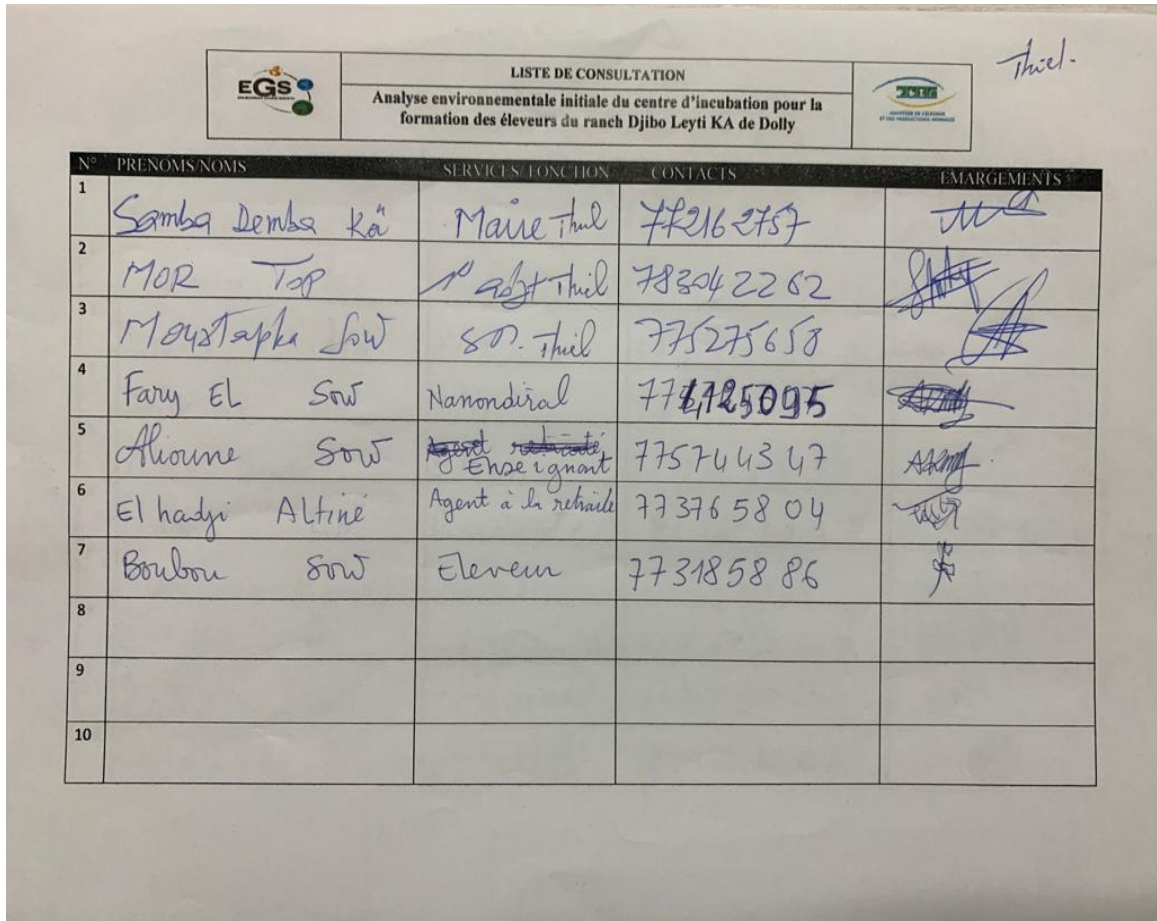 Thiel.
EGS
LISTE DE CONSULTATION
Analyse environnementale initiale du centre d'incubation pour la
formation des éleveurs du ranch Djibo Leyti KA de Dolly
N° PRENOMS/NOMS SERVICES/FONCTION CONTACTS EMARGEMENTS
1 Samba Demba Kâ Maire Thiel 772162757
2 MOR TOP 1º adjt Thiel 783042262
3 Moustapha Sow Thiel 775275658
4 Fary EL Sow Nanondiral
5 Alioune Sow Enseignant 775744347
6 El hadji ALTiné Agent à la retraite 773765804
7 Boubou Sow Eleveur 773185886
8
9
10